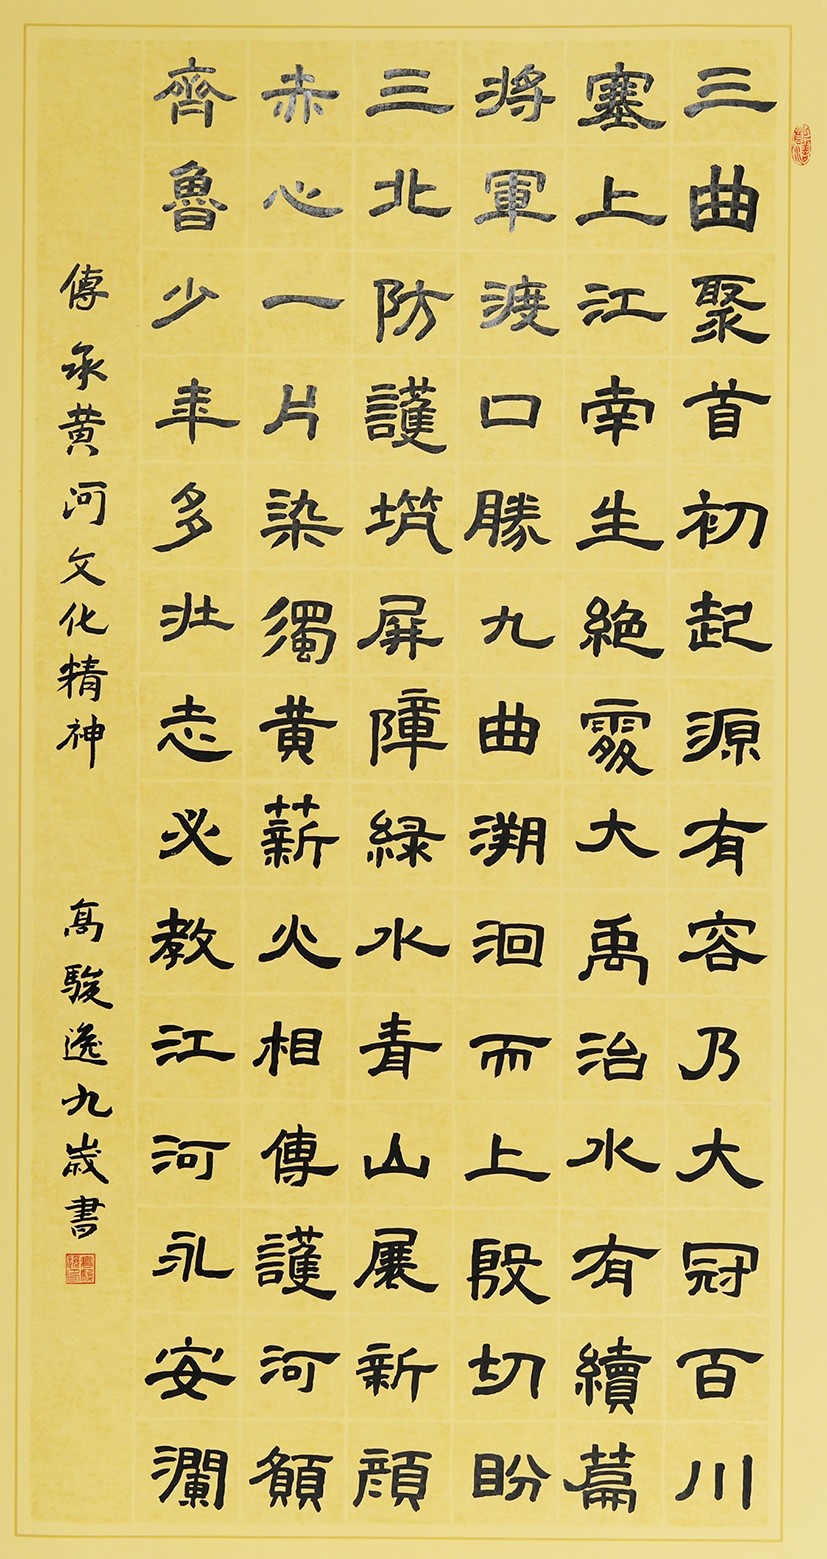 三曲聚首初起源有容乃大冠百川
塞上江南生絶處大禹治水有續篇
將軍渡口勝九曲溯洄而上殷切盼
三北防護筑屏障緑水青山展新顔
赤心一片染獨黄薪火相傳護河願
齊魯少年多壯志必教江河永安瀾
傳承黄河文化精神 高駿逸九歲書